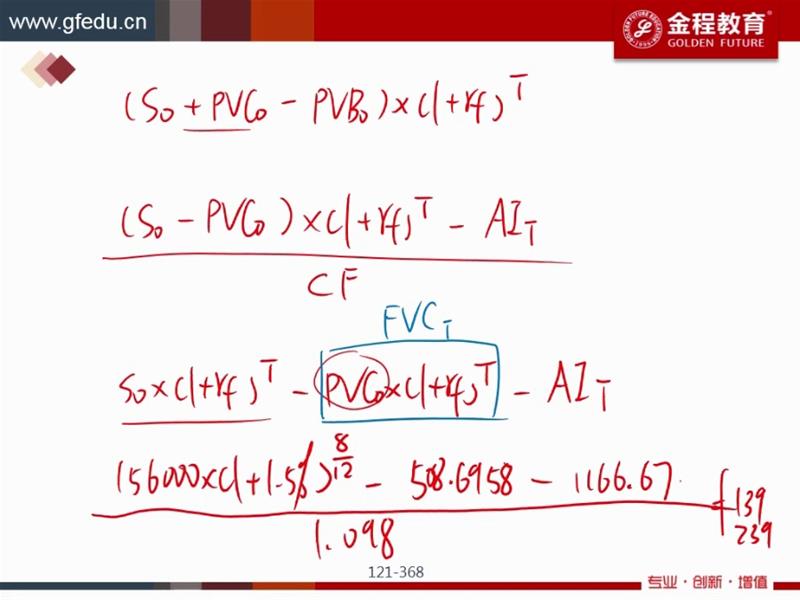 www.gfedu.cn
金程教育®
GOLDEN FUTURE
(S₀ + PVC₀ - PVB₀) × (1+rf)^T
(S₀ - PVC₀) × (1+rf)^T - AI_T
CF
FVC_T
S₀ × (1+rf)^T - PVC₀ × (1+rf)^T - AI_T
156000 × (1+1.5%)^(8/12) - 508.6958 - 1166.67
139
239
1.098
121-368
专业·创新·增值